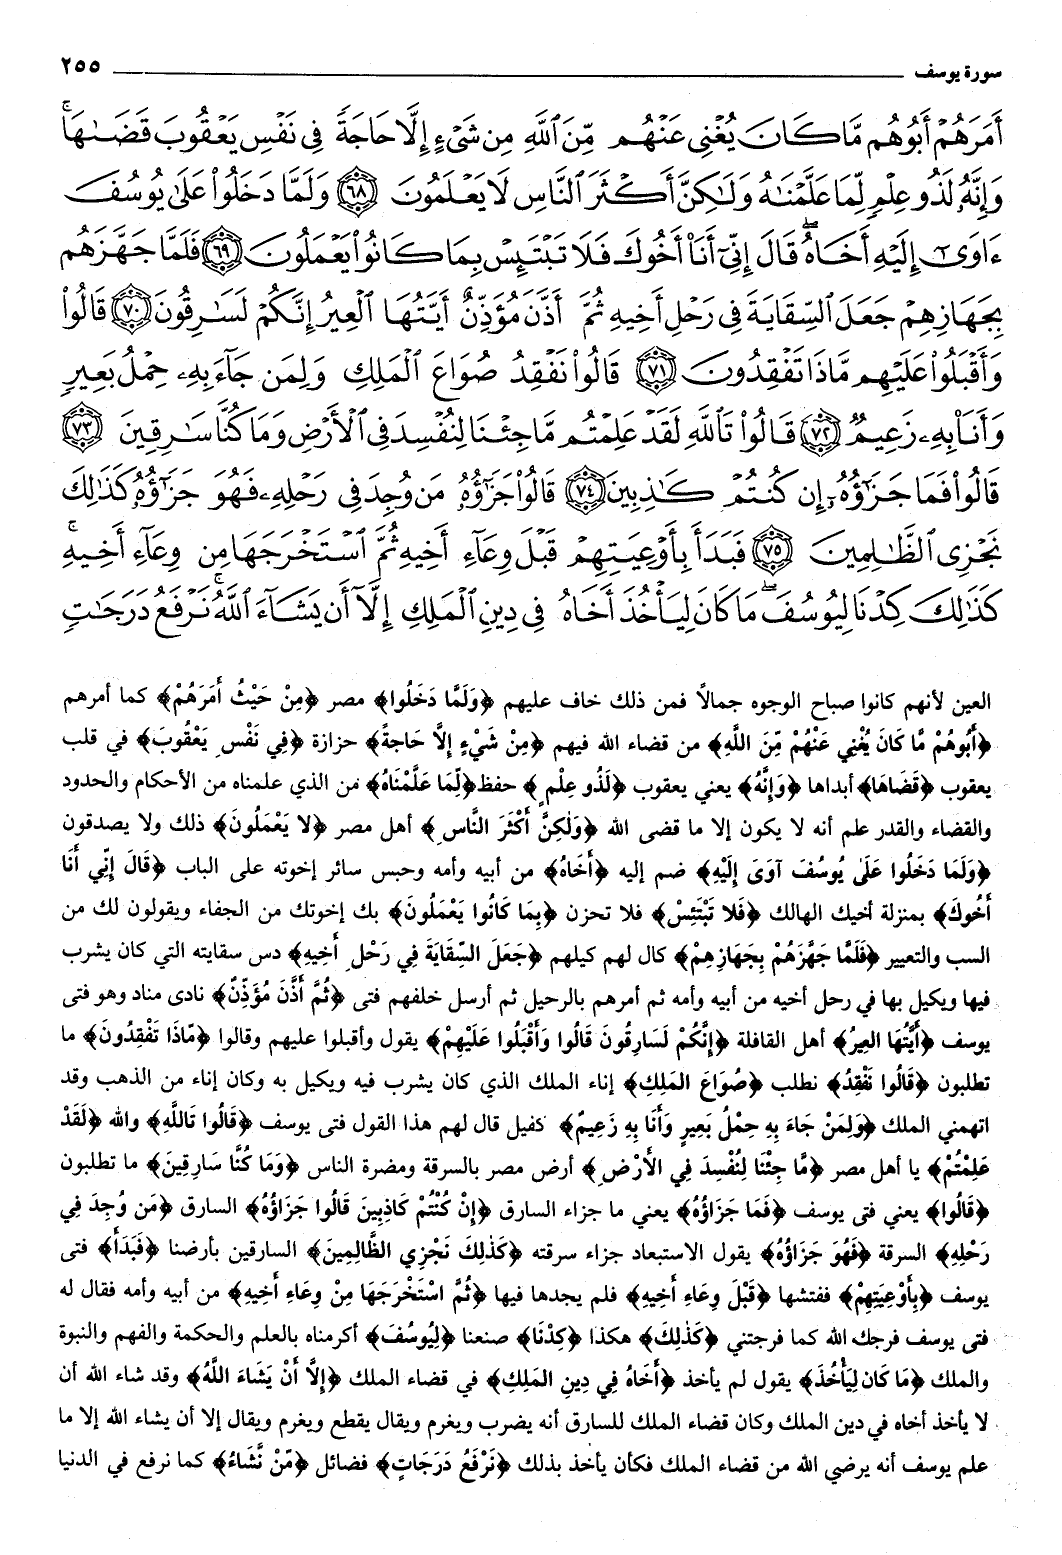 سورة يوسف ٢٥٥
أَمَرَهُمْ أَبُوهُم مَّا كَانَ يُغْنِي عَنْهُم مِّنَ ٱللَّهِ مِن شَيْءٍ إِلَّا حَاجَةً فِي نَفْسِ يَعْقُوبَ قَضَىٰهَا ۚ
وَإِنَّهُۥ لَذُو عِلْمٍ لِّمَا عَلَّمْنَٰهُ وَلَٰكِنَّ أَكْثَرَ ٱلنَّاسِ لَا يَعْلَمُونَ ﴿٦٨﴾ وَلَمَّا دَخَلُوا۟ عَلَىٰ يُوسُفَ
ءَاوَىٰٓ إِلَيْهِ أَخَاهُ ۖ قَالَ إِنِّىٓ أَنَا۠ أَخُوكَ فَلَا تَبْتَئِسْ بِمَا كَانُوا۟ يَعْمَلُونَ ﴿٦٩﴾ فَلَمَّا جَهَّزَهُم
بِجَهَازِهِمْ جَعَلَ ٱلسِّقَايَةَ فِى رَحْلِ أَخِيهِ ثُمَّ أَذَّنَ مُؤَذِّنٌ أَيَّتُهَا ٱلْعِيرُ إِنَّكُمْ لَسَٰرِقُونَ ﴿٧٠﴾ قَالُوا۟
وَأَقْبَلُوا۟ عَلَيْهِم مَّاذَا تَفْقِدُونَ ﴿٧١﴾ قَالُوا۟ نَفْقِدُ صُوَاعَ ٱلْمَلِكِ وَلِمَن جَآءَ بِهِۦ حِمْلُ بَعِيرٍ
وَأَنَا۠ بِهِۦ زَعِيمٌ ﴿٧٢﴾ قَالُوا۟ تَٱللَّهِ لَقَدْ عَلِمْتُم مَّا جِئْنَا لِنُفْسِدَ فِى ٱلْأَرْضِ وَمَا كُنَّا سَٰرِقِينَ ﴿٧٣﴾
قَالُوا۟ فَمَا جَزَٰٓؤُهُۥٓ إِن كُنتُمْ كَٰذِبِينَ ﴿٧٤﴾ قَالُوا۟ جَزَٰٓؤُهُۥ مَن وُجِدَ فِى رَحْلِهِۦ فَهُوَ جَزَٰٓؤُهُۥ كَذَٰلِكَ
نَجْزِى ٱلظَّٰلِمِينَ ﴿٧٥﴾ فَبَدَأَ بِأَوْعِيَتِهِمْ قَبْلَ وِعَآءِ أَخِيهِ ثُمَّ ٱسْتَخْرَجَهَا مِن وِعَآءِ أَخِيهِ ۚ
كَذَٰلِكَ كِدْنَا لِيُوسُفَ ۖ مَا كَانَ لِيَأْخُذَ أَخَاهُ فِى دِينِ ٱلْمَلِكِ إِلَّآ أَن يَشَآءَ ٱللَّهُ ۚ نَرْفَعُ دَرَجَٰتٍ
العين لأنهم كانوا صباح الوجوه جمالاً فمن ذلك خاف عليهم ﴿وَلَمَّا دَخَلُوا﴾ مصر ﴿مِنْ حَيْثُ أَمَرَهُمْ﴾ كما أمرهم
﴿أَبُوهُمْ مَّا كَانَ يُغْنِي عَنْهُمْ مِّنَ اللَّهِ﴾ من قضاء الله فيهم ﴿مِنْ شَيْءٍ إِلَّا حَاجَةً﴾ حزازة ﴿فِي نَفْسِ يَعْقُوبَ﴾ في قلب
يعقوب ﴿قَضَاهَا﴾ أبداها ﴿وَإِنَّهُ﴾ يعني يعقوب ﴿لَذُو عِلْمٍ﴾ حفظ ﴿لِّمَا عَلَّمْنَاهُ﴾ من الذي علمناه من الأحكام والحدود
والقضاء والقدر علم أنه لا يكون إلا ما قضى الله ﴿وَلَكِنَّ أَكْثَرَ النَّاسِ﴾ أهل مصر ﴿لا يَعْمَلُونَ﴾ ذلك ولا يصدقون
﴿وَلَمَا دَخَلُوا عَلَىٰ يُوسُفَ آوَىٰ إِلَيْهِ﴾ ضم إليه ﴿أَخَاهُ﴾ من أبيه وأمه وحبس سائر إخوته على الباب ﴿قَالَ إِنِّي أَنَا
أَخُوكَ﴾ بمنزلة أخيك الهالك ﴿فَلا تَبْتَئِسْ﴾ فلا تحزن ﴿بِمَا كَانُوا يَعْمَلُونَ﴾ بك إخوتك من الجفاء ويقولون لك من
السب والتعيير ﴿فَلَمَّا جَهَّزَهُمْ بِجَهَازِهِمْ﴾ كال لهم كيلهم ﴿جَعَلَ السِّقَايَةَ فِي رَحْلِ أَخِيهِ﴾ دس سقايته التي كان يشرب
فيها ويكيل بها في رحل أخيه من أبيه وأمه ثم أمرهم بالرحيل ثم أرسل خلفهم فتى ﴿ثُمَّ أَذَّنَ مُؤَذِّنٌ﴾ نادى مناد وهو فتى
يوسف ﴿أَيَّتُهَا العِيرُ﴾ أهل القافلة ﴿إِنَّكُمْ لَسَارِقُونَ قَالُوا وَأَقْبَلُوا عَلَيْهِمْ﴾ يقول وأقبلوا عليهم وقالوا ﴿مّاذَا تَفْقِدُونَ﴾ ما
تطلبون ﴿قَالُوا نَفْقِدُ﴾ نطلب ﴿صُوَاعَ المَلِكِ﴾ إناء الملك الذي كان يشرب فيه ويكيل به وكان إناء من الذهب وقد
اتهمني الملك ﴿وَلِمَنْ جَاءَ بِهِ حِمْلُ بَعِيرٍ وَأَنَا بِهِ زَعِيمٌ﴾ كفيل قال لهم هذا القول فتى يوسف ﴿قَالُوا تَاللَّهِ﴾ والله ﴿لَقَدْ
عَلِمْتُمْ﴾ يا أهل مصر ﴿مَّا جِئْنَا لِنُفْسِدَ فِي الأَرْضِ﴾ أرض مصر بالسرقة ومضرة الناس ﴿وَمَا كُنَّا سَارِقِينَ﴾ ما تطلبون
﴿قَالُوا﴾ يعني فتى يوسف ﴿فَمَا جَزَاؤُهُ﴾ يعني ما جزاء السارق ﴿إِنْ كُنْتُمْ كَاذِبِينَ قَالُوا جَزَاؤُهُ﴾ السارق ﴿مَن وُجِدَ فِي
رَحْلِهِ﴾ السرقة ﴿فَهُوَ جَزَاؤُهُ﴾ يقول الاستبعاد جزاء سرقته ﴿كَذَلِكَ نَجْزِي الظَّالِمِينَ﴾ السارقين بأرضنا ﴿فَبَدَأَ﴾ فتى
يوسف ﴿بِأَوْعِيَتِهِمْ﴾ ففتشها ﴿قَبْلَ وِعَاءِ أَخِيهِ﴾ فلم يجدها فيها ﴿ثُمَّ اسْتَخْرَجَهَا مِنْ وِعَاءِ أَخِيهِ﴾ من أبيه وأمه فقال له
فتى يوسف فرجك الله كما فرجتني ﴿كَذَلِكَ﴾ هكذا ﴿كِدْنَا﴾ صنعنا ﴿لِيُوسُفَ﴾ أكرمناه بالعلم والحكمة والفهم والنبوة
والملك ﴿مَا كَان لِيَأْخُذَ﴾ يقول لم يأخذ ﴿أَخَاهُ فِي دِينِ المَلِكِ﴾ في قضاء الملك ﴿إِلَّا أَنْ يَشَاءَ اللَّهُ﴾ وقد شاء الله أن
لا يأخذ أخاه في دين الملك وكان قضاء الملك للسارق أنه يضرب ويغرم ويقال يقطع ويغرم ويقال إلا أن يشاء الله إلا ما
علم يوسف أنه يرضي الله من قضاء الملك فكأن يأخذ بذلك ﴿نَرْفَعُ دَرَجَاتٍ﴾ فضائل ﴿مّنْ نَّشَاءُ﴾ كما نرفع في الدنيا